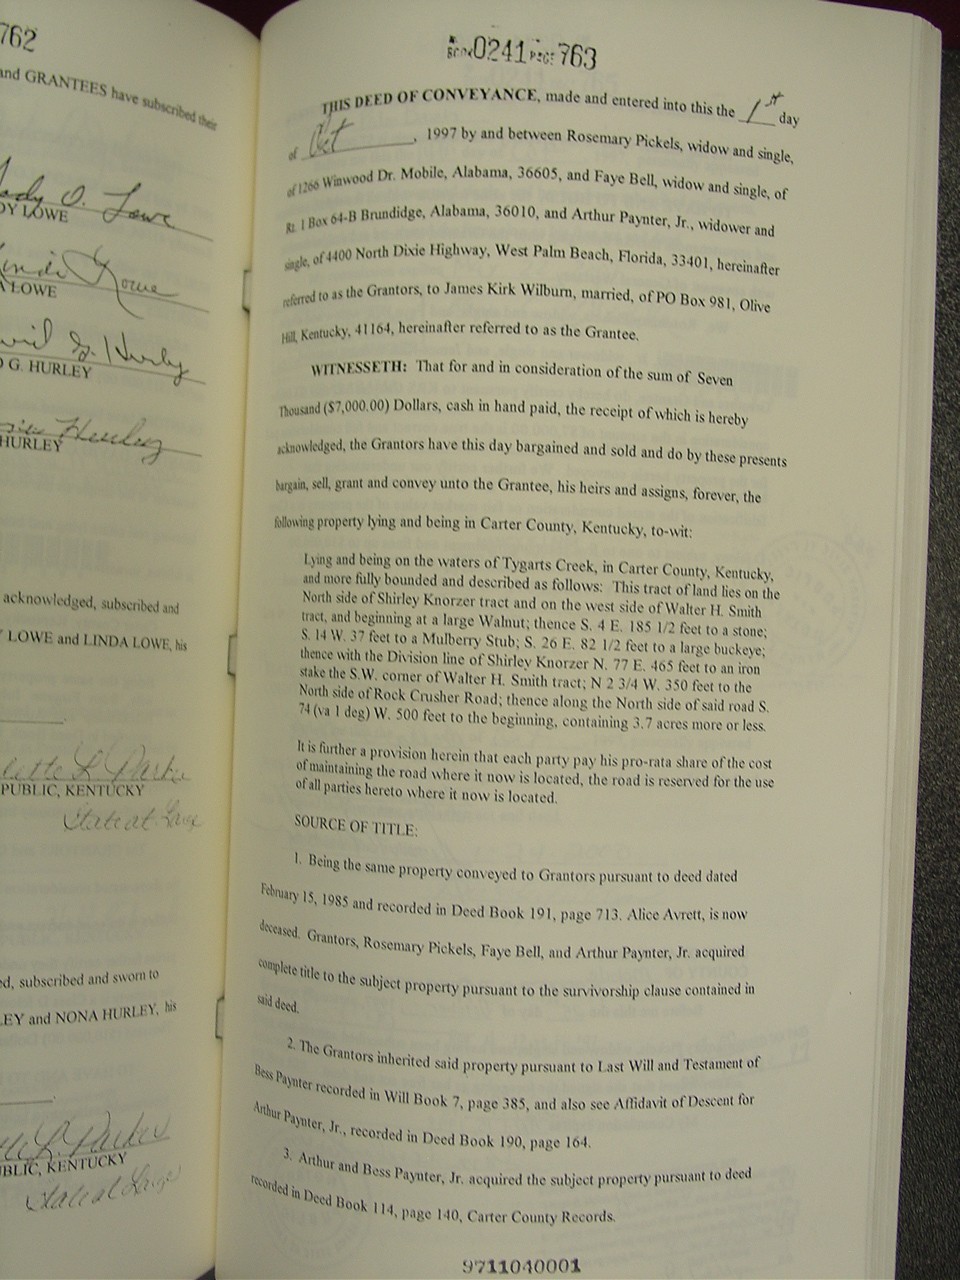 762
and GRANTEES have subscribed their
DY LOWE
A LOWE
D G. HURLEY
HURLEY
acknowledged, subscribed and
Y LOWE and LINDA LOWE, his
PUBLIC, KENTUCKY
State at Large
ed, subscribed and sworn to
LEY and NONA HURLEY, his
BLIC, KENTUCKY
State at Large
BOOK 0241 PAGE 763
THIS DEED OF CONVEYANCE, made and entered into this the 1st day
of Oct, 1997 by and between Rosemary Pickels, widow and single,
of 1266 Winwood Dr. Mobile, Alabama, 36605, and Faye Bell, widow and single, of
Rt. 1 Box 64-B Brundidge, Alabama, 36010, and Arthur Paynter, Jr., widower and
single, of 4400 North Dixie Highway, West Palm Beach, Florida, 33401, hereinafter
referred to as the Grantors, to James Kirk Wilburn, married, of PO Box 981, Olive
Hill, Kentucky, 41164, hereinafter referred to as the Grantee.
WITNESSETH: That for and in consideration of the sum of Seven
Thousand ($7,000.00) Dollars, cash in hand paid, the receipt of which is hereby
acknowledged, the Grantors have this day bargained and sold and do by these presents
bargain, sell, grant and convey unto the Grantee, his heirs and assigns, forever, the
following property lying and being in Carter County, Kentucky, to-wit:
Lying and being on the waters of Tygarts Creek, in Carter County, Kentucky,
and more fully bounded and described as follows: This tract of land lies on the
North side of Shirley Knorzer tract and on the west side of Walter H. Smith
tract, and beginning at a large Walnut; thence S. 4 E. 185 1/2 feet to a stone;
S. 14 W. 37 feet to a Mulberry Stub; S. 26 E. 82 1/2 feet to a large buckeye;
thence with the Division line of Shirley Knorzer N. 77 E. 465 feet to an iron
stake the S.W. corner of Walter H. Smith tract; N 2 3/4 W. 350 feet to the
North side of Rock Crusher Road; thence along the North side of said road S.
74 (va 1 deg) W. 500 feet to the beginning, containing 3.7 acres more or less.
It is further a provision herein that each party pay his pro-rata share of the cost
of maintaining the road where it now is located, the road is reserved for the use
of all parties hereto where it now is located.
SOURCE OF TITLE:
1. Being the same property conveyed to Grantors pursuant to deed dated
February 15, 1985 and recorded in Deed Book 191, page 713. Alice Avrett, is now
deceased. Grantors, Rosemary Pickels, Faye Bell, and Arthur Paynter, Jr. acquired
complete title to the subject property pursuant to the survivorship clause contained in
said deed.
2. The Grantors inherited said property pursuant to Last Will and Testament of
Bess Paynter recorded in Will Book 7, page 385, and also see Affidavit of Descent for
Arthur Paynter, Jr., recorded in Deed Book 190, page 164.
3. Arthur and Bess Paynter, Jr. acquired the subject property pursuant to deed
recorded in Deed Book 114, page 140, Carter County Records.
9711040001